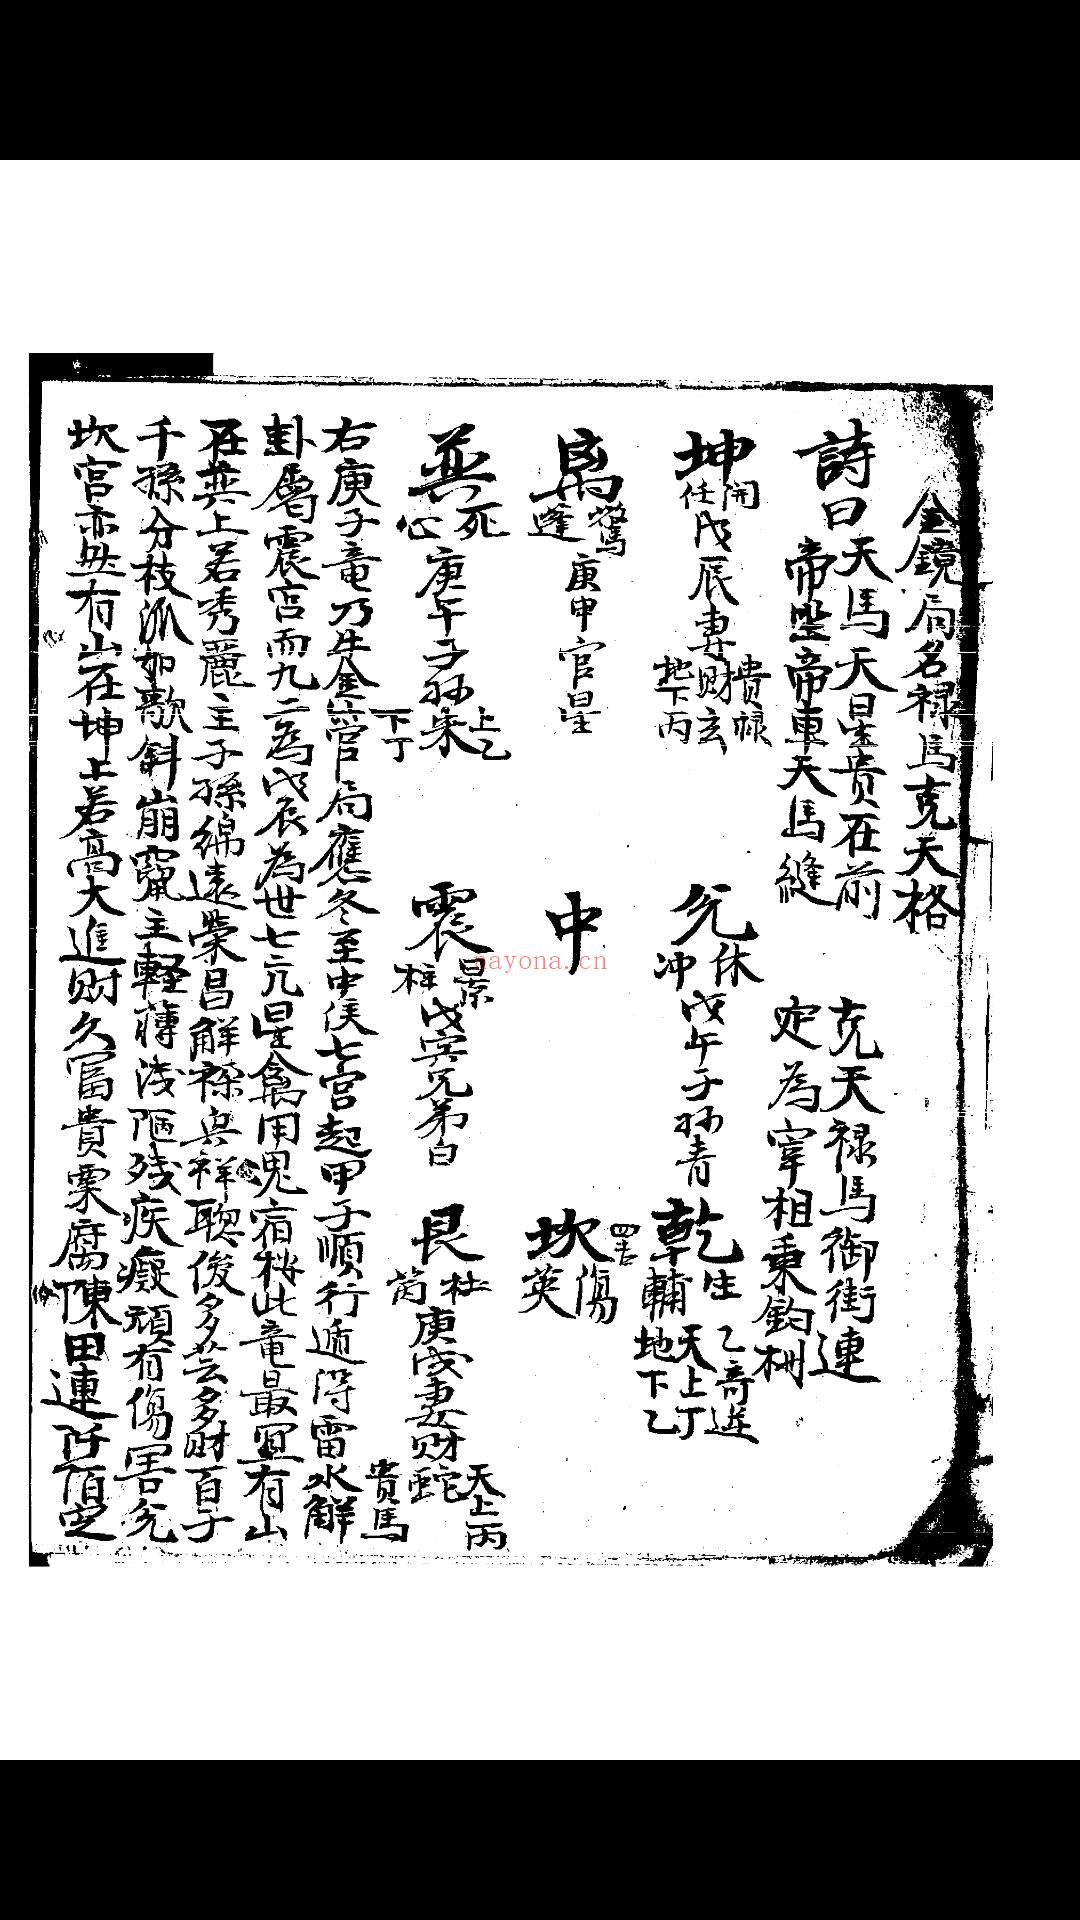 金鏡局名禄馬克天格
詩曰天馬天星貴在前 克天禄馬御街連
帝坐帝車天馬縫 定為宰相秉鈞衡
坤 開任 戊辰妻財玄 貴禄 地下丙
兌 休冲 戊午子孙青
乾 生輔 乙奇逆 天上丁 地下乙
离 驚蓬 庚申官星
中
坎 傷英
巽 死心 庚午子孙朱 上乙 下丁
震 景柱 戊寅兄弟白
艮 杜芮 庚戌妻财蛇 天上丙 貴馬
右庚子竜乃生金管局應冬至中侯七宮起甲子順行遁得雷水解
卦屬震宮而九二為戊辰為世七亢星禽用鬼宿 此竜最宜有山
在巽上若秀麗主子孫綿遠榮昌解 兵祥聰俊多 多财百子
千孫分枝派如欹斜崩竄主輕薄浅陋残疾癡頑有傷害兌
坎宮亦無有山在坤上若高大進财久富貴粟腐陳田連阡陌定
nayona.cn